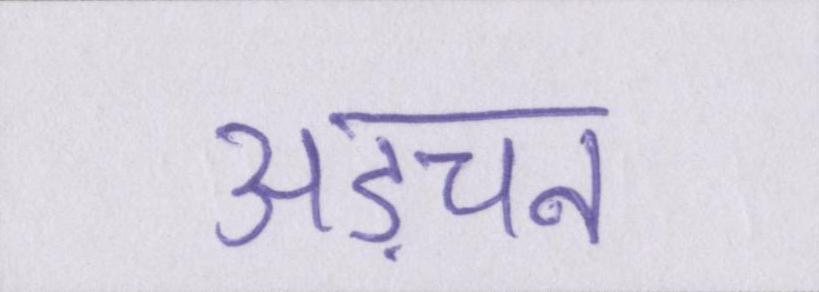 अड़चन